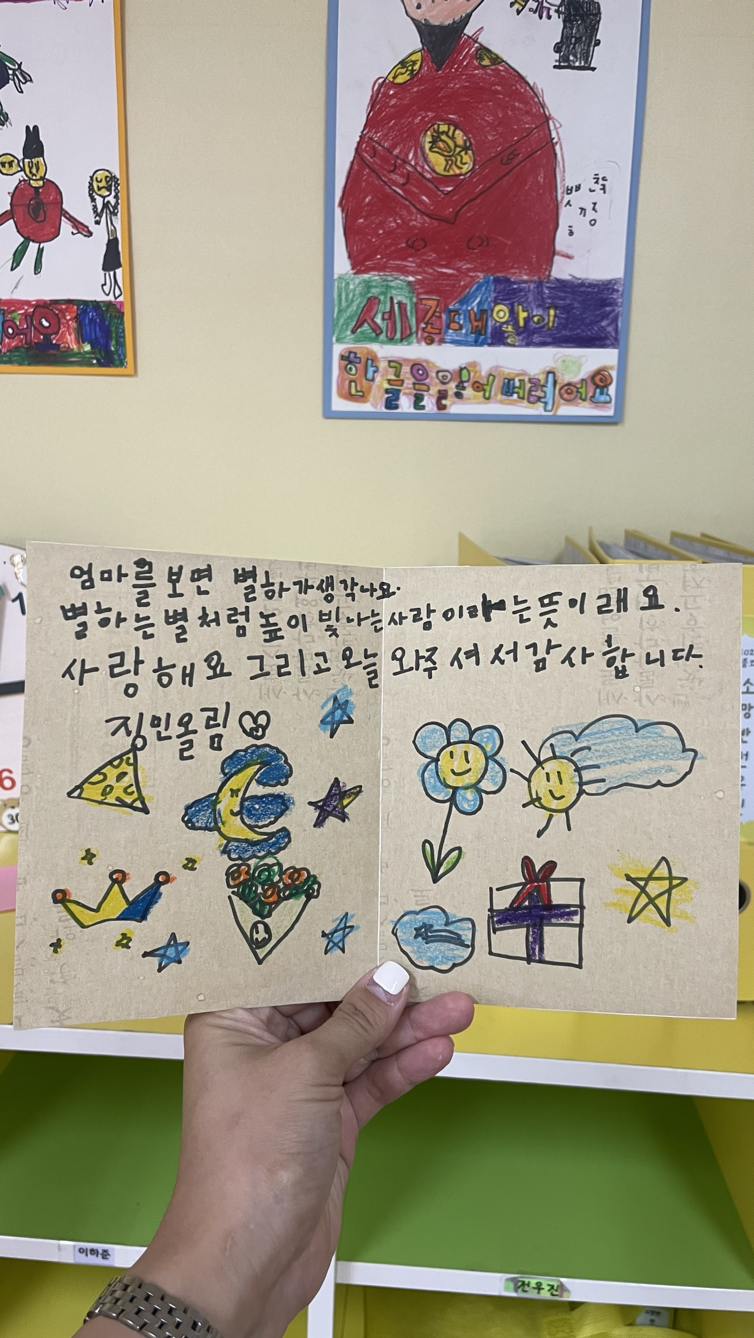 세종대왕이
한글을 잃어버려어요
엄마를 보면 별하가 생각나요.
별하는 별처럼 높이 빛나는 사람이라는 뜻이래요.
사랑해요 그리고 오늘 와주셔서 감사합니다.
징민올림
이하준
전우진